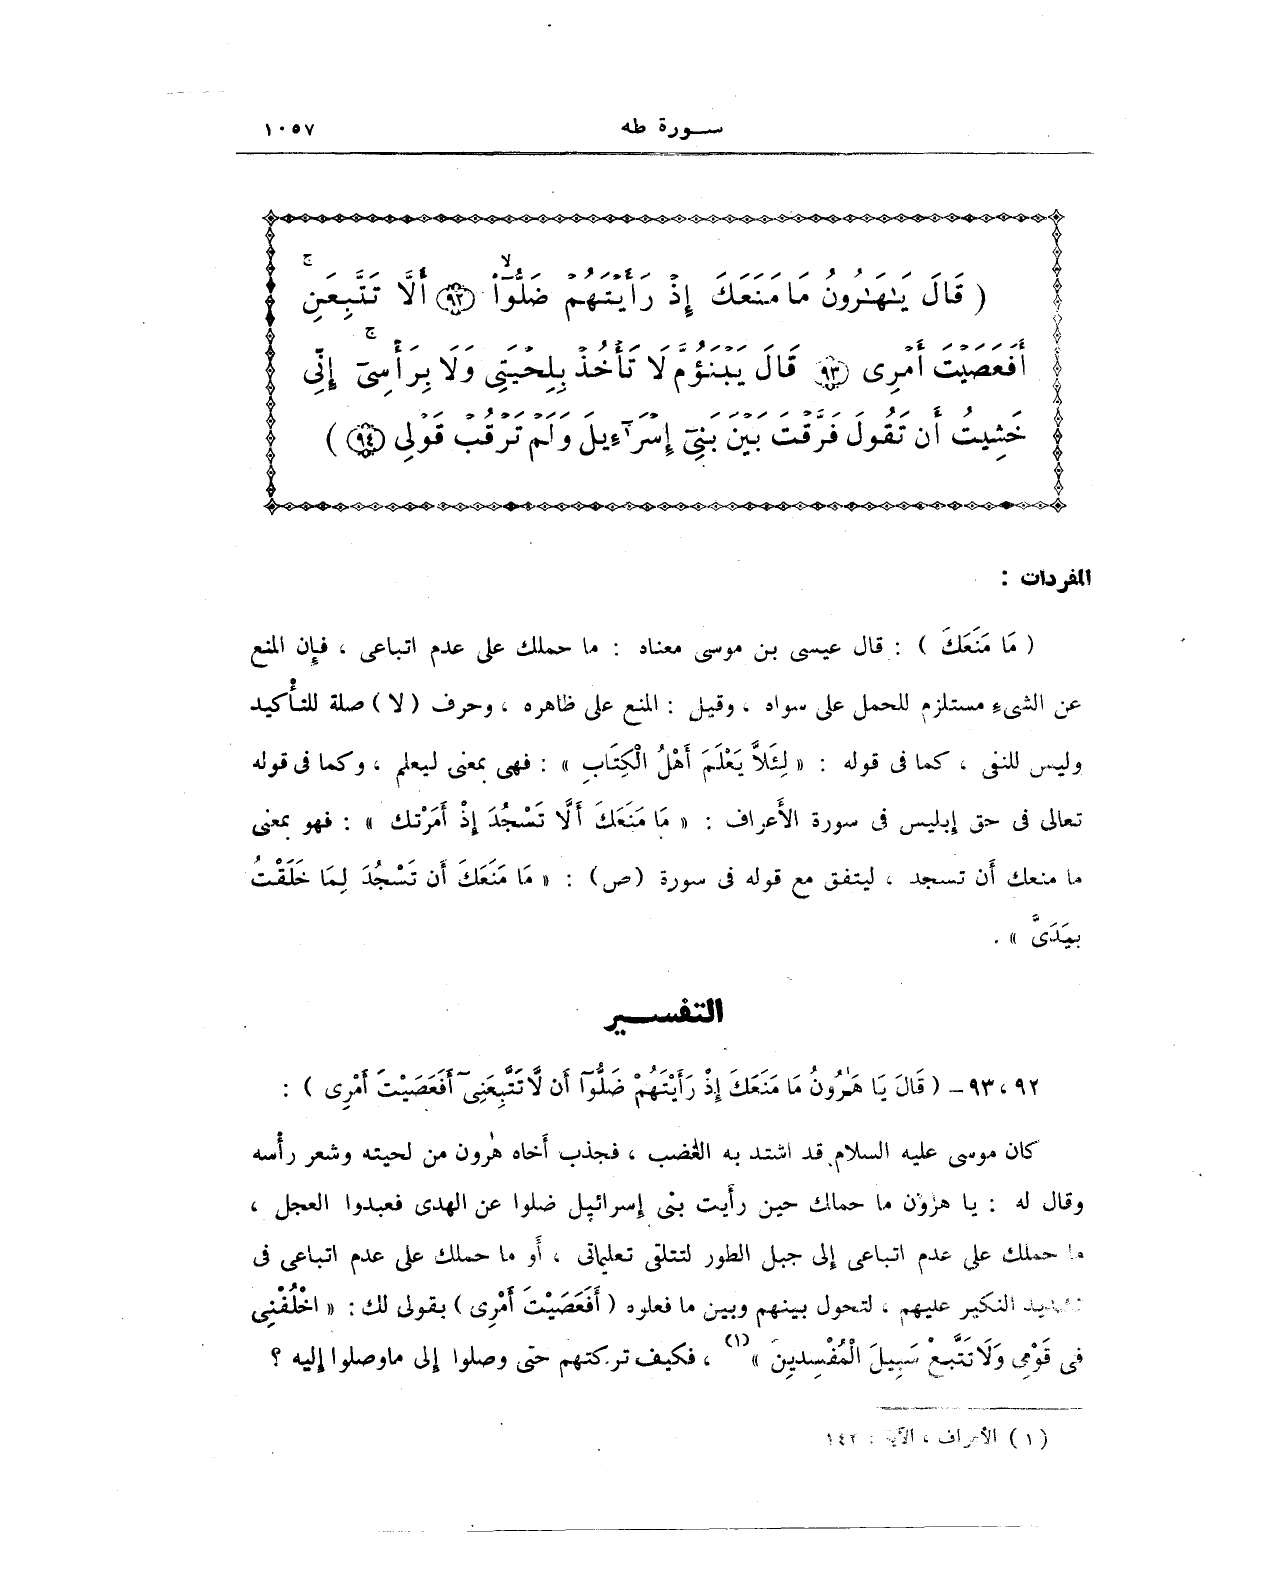 سورة طه ١٠٥٧
( قَالَ يَٰهَٰرُونُ مَا مَنَعَكَ إِذْ رَأَيْتَهُمْ ضَلُّوٓاْ ۙ ٩٢ أَلَّا تَتَّبِعَنِ ۚ
أَفَعَصَيْتَ أَمْرِى ٩٣ قَالَ يَبْنَؤُمَّ لَا تَأْخُذْ بِلِحْيَتِى وَلَا بِرَأْسِىٓ ۚ إِنِّى
خَشِيتُ أَن تَقُولَ فَرَّقْتَ بَيْنَ بَنِىٓ إِسْرَٰٓءِيلَ وَلَمْ تَرْقُبْ قَوْلِى ٩٤ )
المفردات :
( مَا مَنَعَكَ ) : قال عيسى بن موسى معناه : ما حملك على عدم اتباعى ، فإن المنع
عن الشىء مستلزم للحمل على سواه ، وقيل : المنع على ظاهره ، وحرف (لا) صلة للتأكيد
وليس للنفى ، كما فى قوله : « لِئَلَّا يَعْلَمَ أَهْلُ الْكِتَابِ » : فهى بمعنى ليعلم ، وكما فى قوله
تعالى فى حق إبليس فى سورة الأعراف : « مَا مَنَعَكَ أَلَّا تَسْجُدَ إِذْ أَمَرْتك » : فهو بمعنى
ما منعك أن تسجد ، ليتفق مع قوله فى سورة (ص) : « مَا مَنَعَكَ أَن تَسْجُدَ لِمَا خَلَقْتُ
بِيَدَىَّ » .
التفسير
٩٢ ، ٩٣ – ( قَالَ يَا هَٰرُونُ مَا مَنَعَكَ إِذْ رَأَيْتَهُمْ ضَلُّوٓا أَن لَّا تَتَّبِعَنِىٓ أَفَعَصَيْتَ أَمْرِى ) :
كان موسى عليه السلام قد اشتد به الغضب ، فجذب أخاه هٰرون من لحيته وشعر رأسه
وقال له : يا هٰرون ما حملك حين رأيت بنى إسرائيل ضلوا عن الهدى فعبدوا العجل ،
ما حملك على عدم اتباعى إلى جبل الطور لتتلقى تعليماتى ، أو ما حملك على عدم اتباعى فى
تشديد النكير عليهم ، لتحول بينهم وبين ما فعلوه ( أَفَعَصَيْتَ أَمْرِى ) بقولى لك : « اخْلُفْنِى
فى قَوْمِى وَلَا تَتَّبِعْ سَبِيلَ الْمُفْسِدِينَ » (١) ، فكيف تركتهم حتى وصلوا إلى ماوصلوا إليه ؟
(١) الأعراف ، الآية : ١٤٢